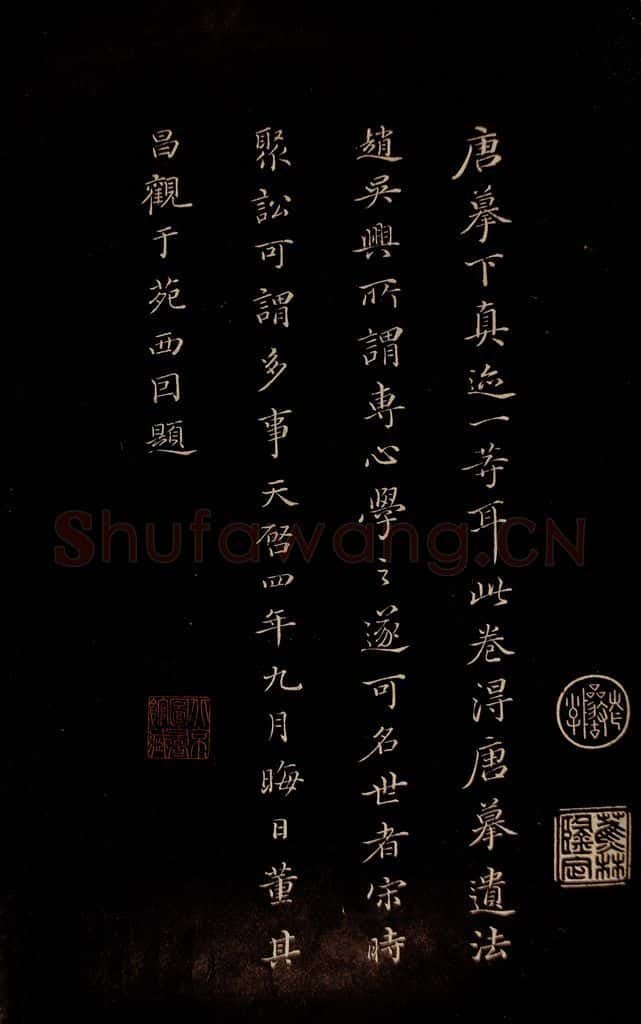 唐摹下真迹一等耳此卷得唐摹遺法
趙吳興所謂專心學之遂可名世者宋時
聚訟可謂多事天啓四年九月晦日董其
昌觀于苑西因題
Shufawang.CN
蕉林